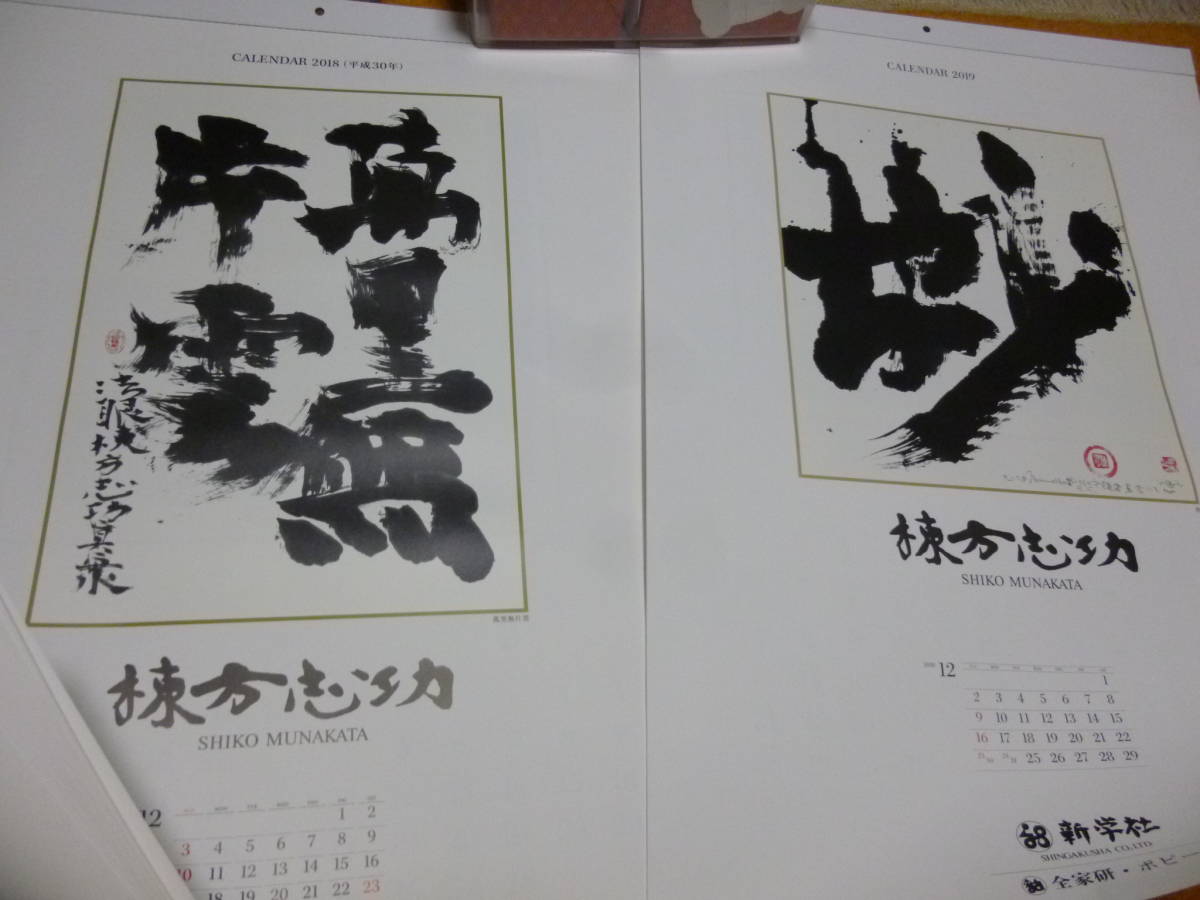 CALENDAR 2018 (平成30年)
萬里無
片雲
法眼棟方志功真蹟
萬里無片雲
棟方志功
SHIKO MUNAKATA
12
1 2
3 4 5 6 7 8 9
10 11 12 13 14 15 16
18 19 20 21 22 23
CALENDAR 2019
妙
棟方志功
SHIKO MUNAKATA
12
1
2 3 4 5 6 7 8
9 10 11 12 13 14 15
16 17 18 19 20 21 22
23/30 24/31 25 26 27 28 29
新学社
SHINGAKUSHA CO.,LTD
全家研・ポピー